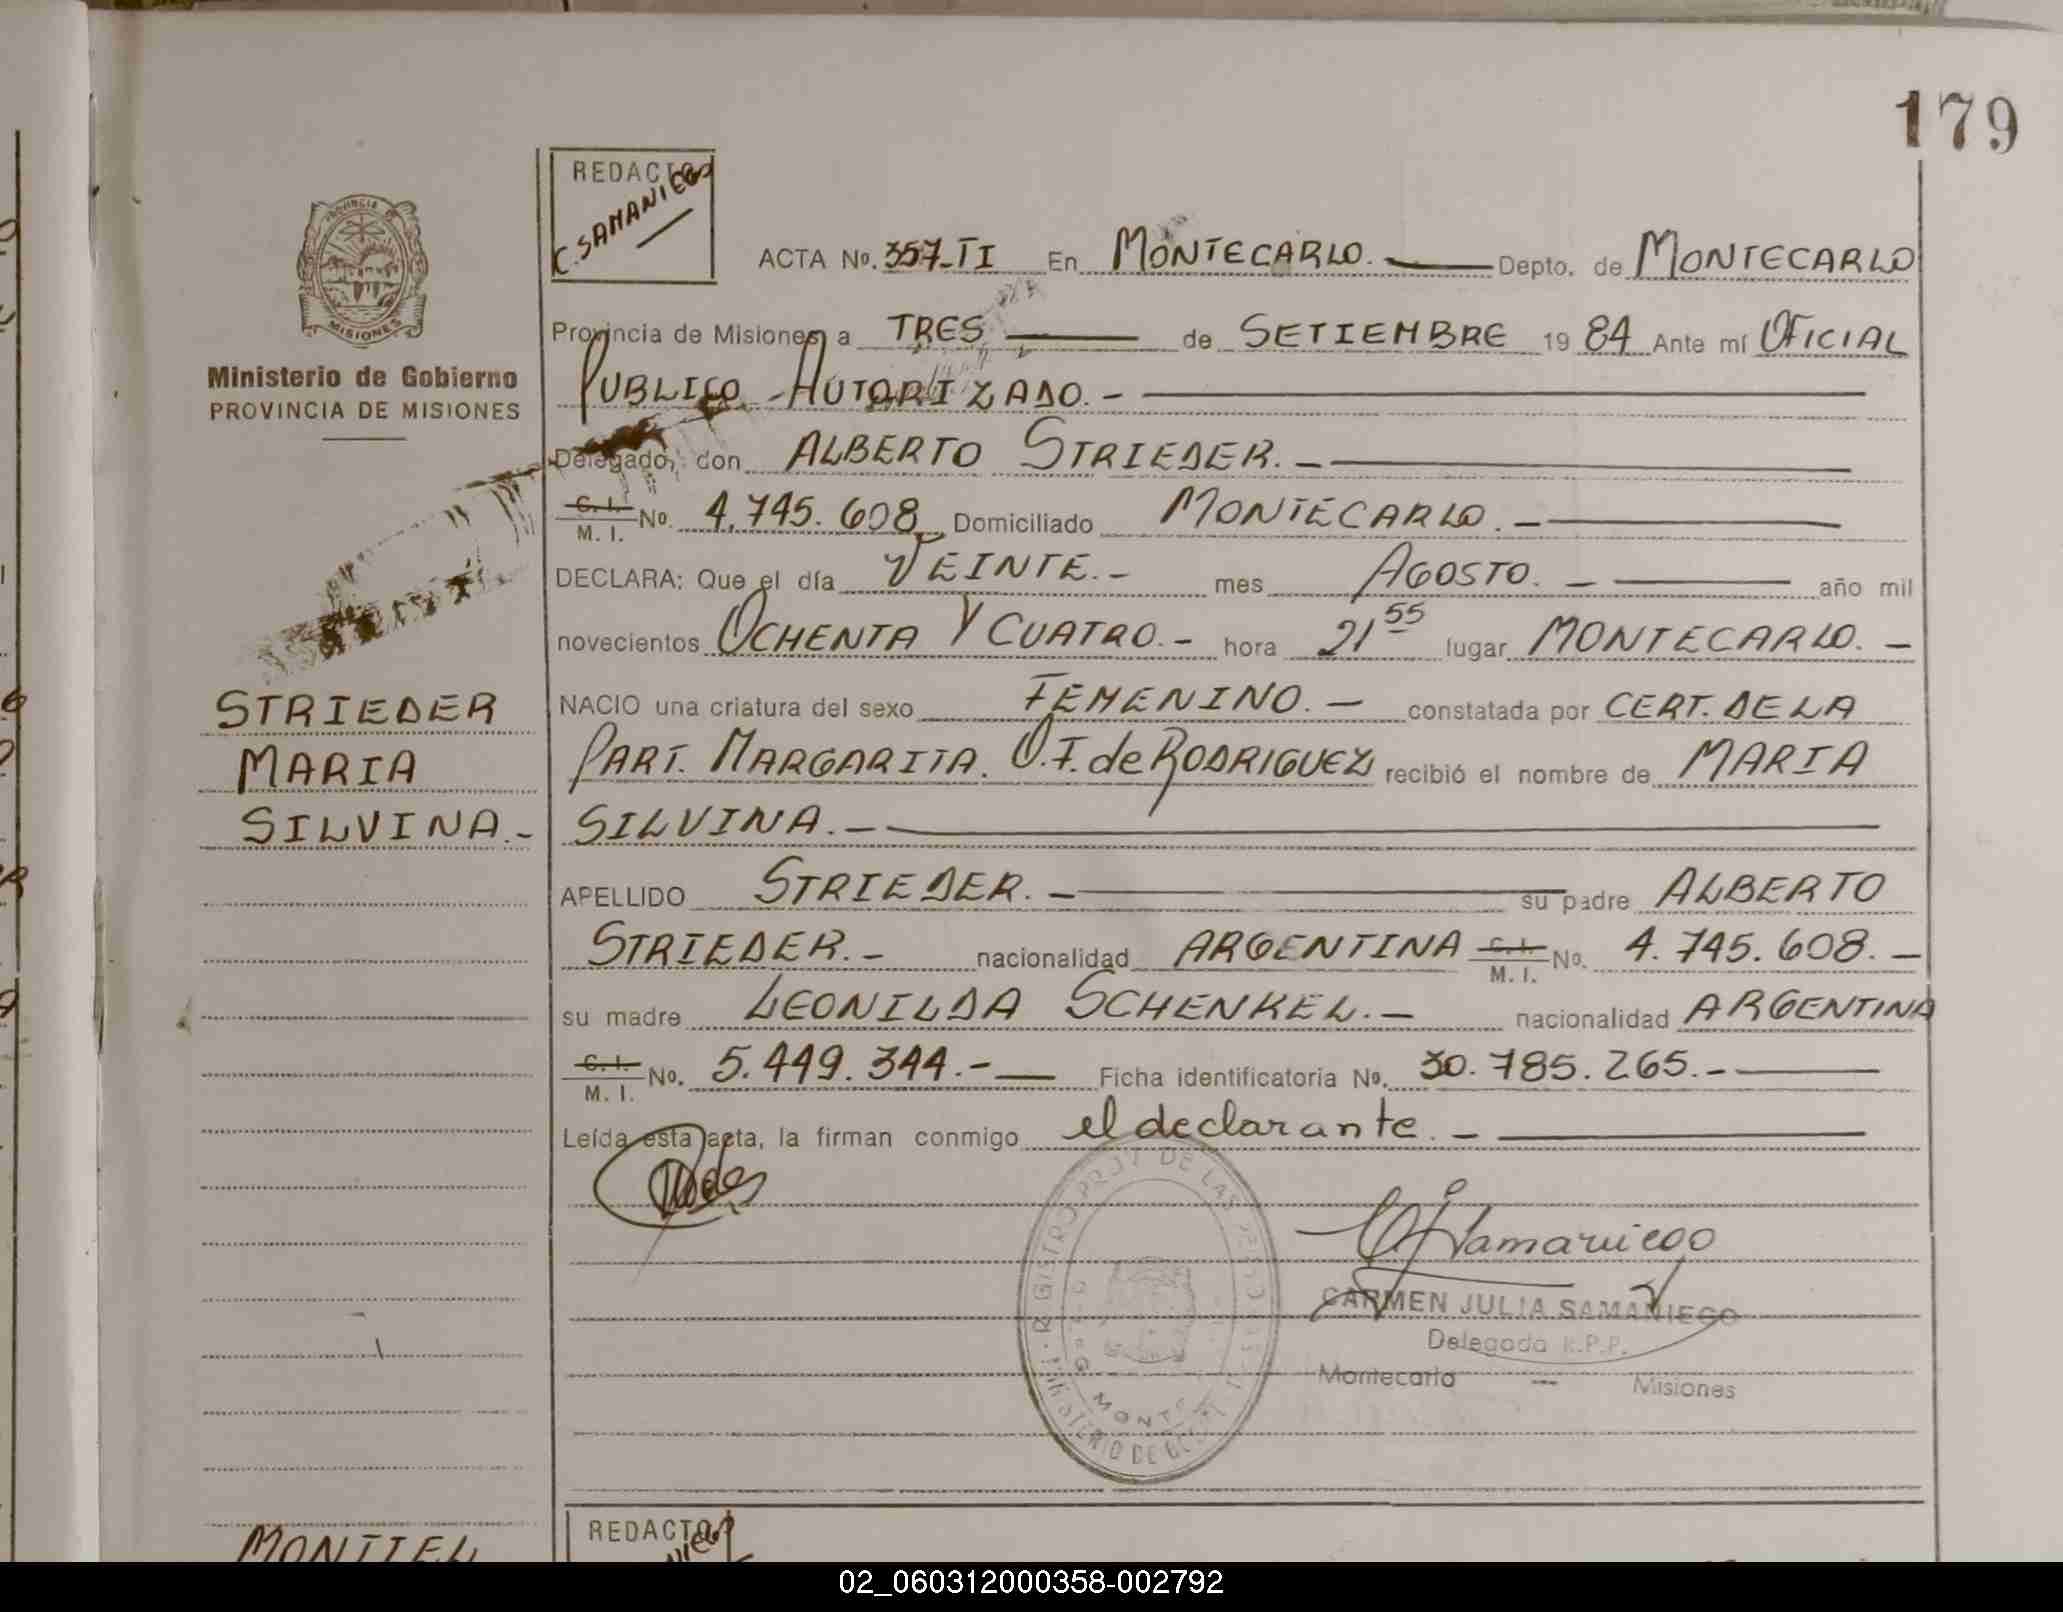 179
PROVINCIA
MISIONES
Ministerio de Gobierno
PROVINCIA DE MISIONES
STRIEDER
MARIA
SILVINA.-
REDACTO
C. SAMANIEGO
ACTA No. 357-TI En MONTECARLO. Depto. de MONTECARLO
Provincia de Misiones a TRES de SETIEMBRE 19 84 Ante mí OFICIAL
PUBLICO AUTORIZADO.-
Delegado, don ALBERTO STRIEDER.-
C. I. M. I. No. 4.745.608 Domiciliado MONTECARLO.-
DECLARA: Que el día VEINTE.- mes AGOSTO.- año mil
novecientos OCHENTA Y CUATRO.- hora 21 55 lugar MONTECARLO.-
NACIO una criatura del sexo FEMENINO.- constatada por CERT. DE LA
PART. MARGARITA. O.F. de RODRIGUEZ recibió el nombre de MARIA
SILVINA.-
APELLIDO STRIEDER.- su padre ALBERTO
STRIEDER.- nacionalidad ARGENTINA C. I. M. I. No. 4.745.608.-
su madre LEONILDA SCHENKEL.- nacionalidad ARGENTINA
C. I. M. I. No. 5.449.344.- Ficha identificatoria No. 30.785.265.-
Leída esta acta, la firman conmigo el declarante.-
Samaniego
CARMEN JULIA SAMANIEGO
Delegada R.P.P.
Montecarlo - Misiones
REGISTRO PROV DE LAS
MINISTERIO DE
MONTE
MONTIEL
REDACTO
02_060312000358-002792